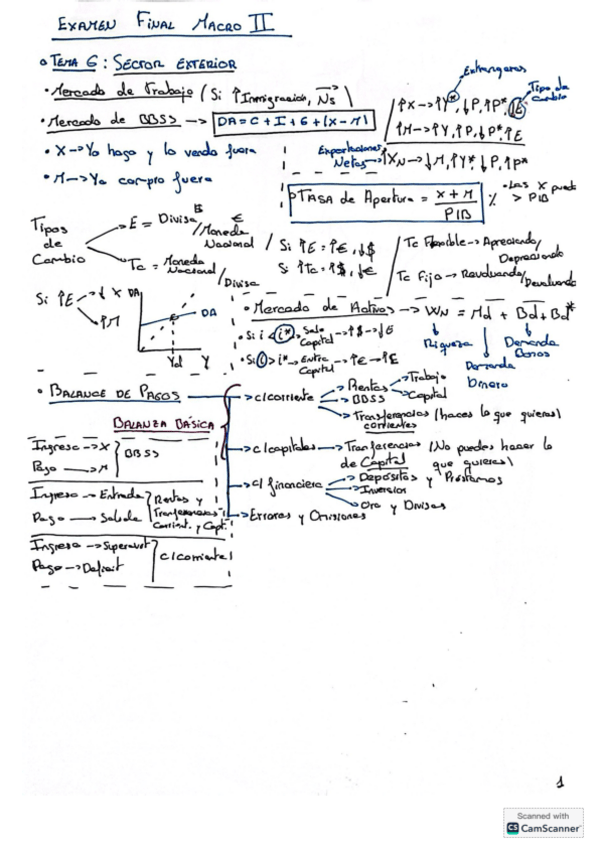 EXAMEN FINAL MACRO II
TEMA 6: SECTOR EXTERIOR
Extranjeros
Tipo de Cambio
• Mercado de Trabajo (Si ↑Inmigración, Ns)
↑X→↑Y*, ↓P, ↑P*, ↓E
• Mercado de BBSS → DA = C + I + G + (X - M)
↑M→↑Y, ↑P, ↓P*, ↑E
• X→Yo hago y lo vendo fuera
Exportaciones Netas → ↑XN→↓M, ↑Y*, ↓P, ↑P*
• M→Yo compro fuera
TASA de Apertura = X + M / PIB %
• Las X puede > PIB
Tipos de Cambio
E = Divisa / Moneda Nacional €
Tc = Moneda Nacional / Divisa
Si ↑E = ↑€, ↓$
Si ↑Tc = ↑$, ↓€
Tc Flexible → Apreciando / Depreciando
Tc Fijo → Revaluando / Devaluando
Si ↑E → ↓X
→ ↑M
DA
DA
Yd Y
• Mercado de Activos → WN = Md + Bd + Bd*
Riqueza
Demanda Dinero
Demanda Bonos
• Si i < i* → Sale Capital → ↑$ → ↓E
• Si i > i* → Entra Capital → ↑€ → ↑E
• BALANCE DE PAGOS
→ c/corriente
→ Rentas
→ Trabajo
→ Capital
→ BBSS
→ Transferencias corrientes (haces lo que quieras)
BALANZA BÁSICA
→ c/capitales → Transferencias de Capital (No puedes hacer lo que quieras)
→ c/ financiera
→ Depósitos y Préstamos
→ Inversión
→ Oro y Divisas
→ Errores y Omisiones
Ingreso → X
Pago → M
BBSS
Ingreso → Entrada
Pago → Salida
Rentas y Transferencias Corrient. y Capt.
Ingreso → Superavit
Pago → Deficit
c/corriente
1
Scanned with
CS CamScanner